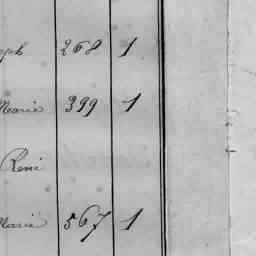 eph 268 1
Marie 399 1
René
Marie 567 1